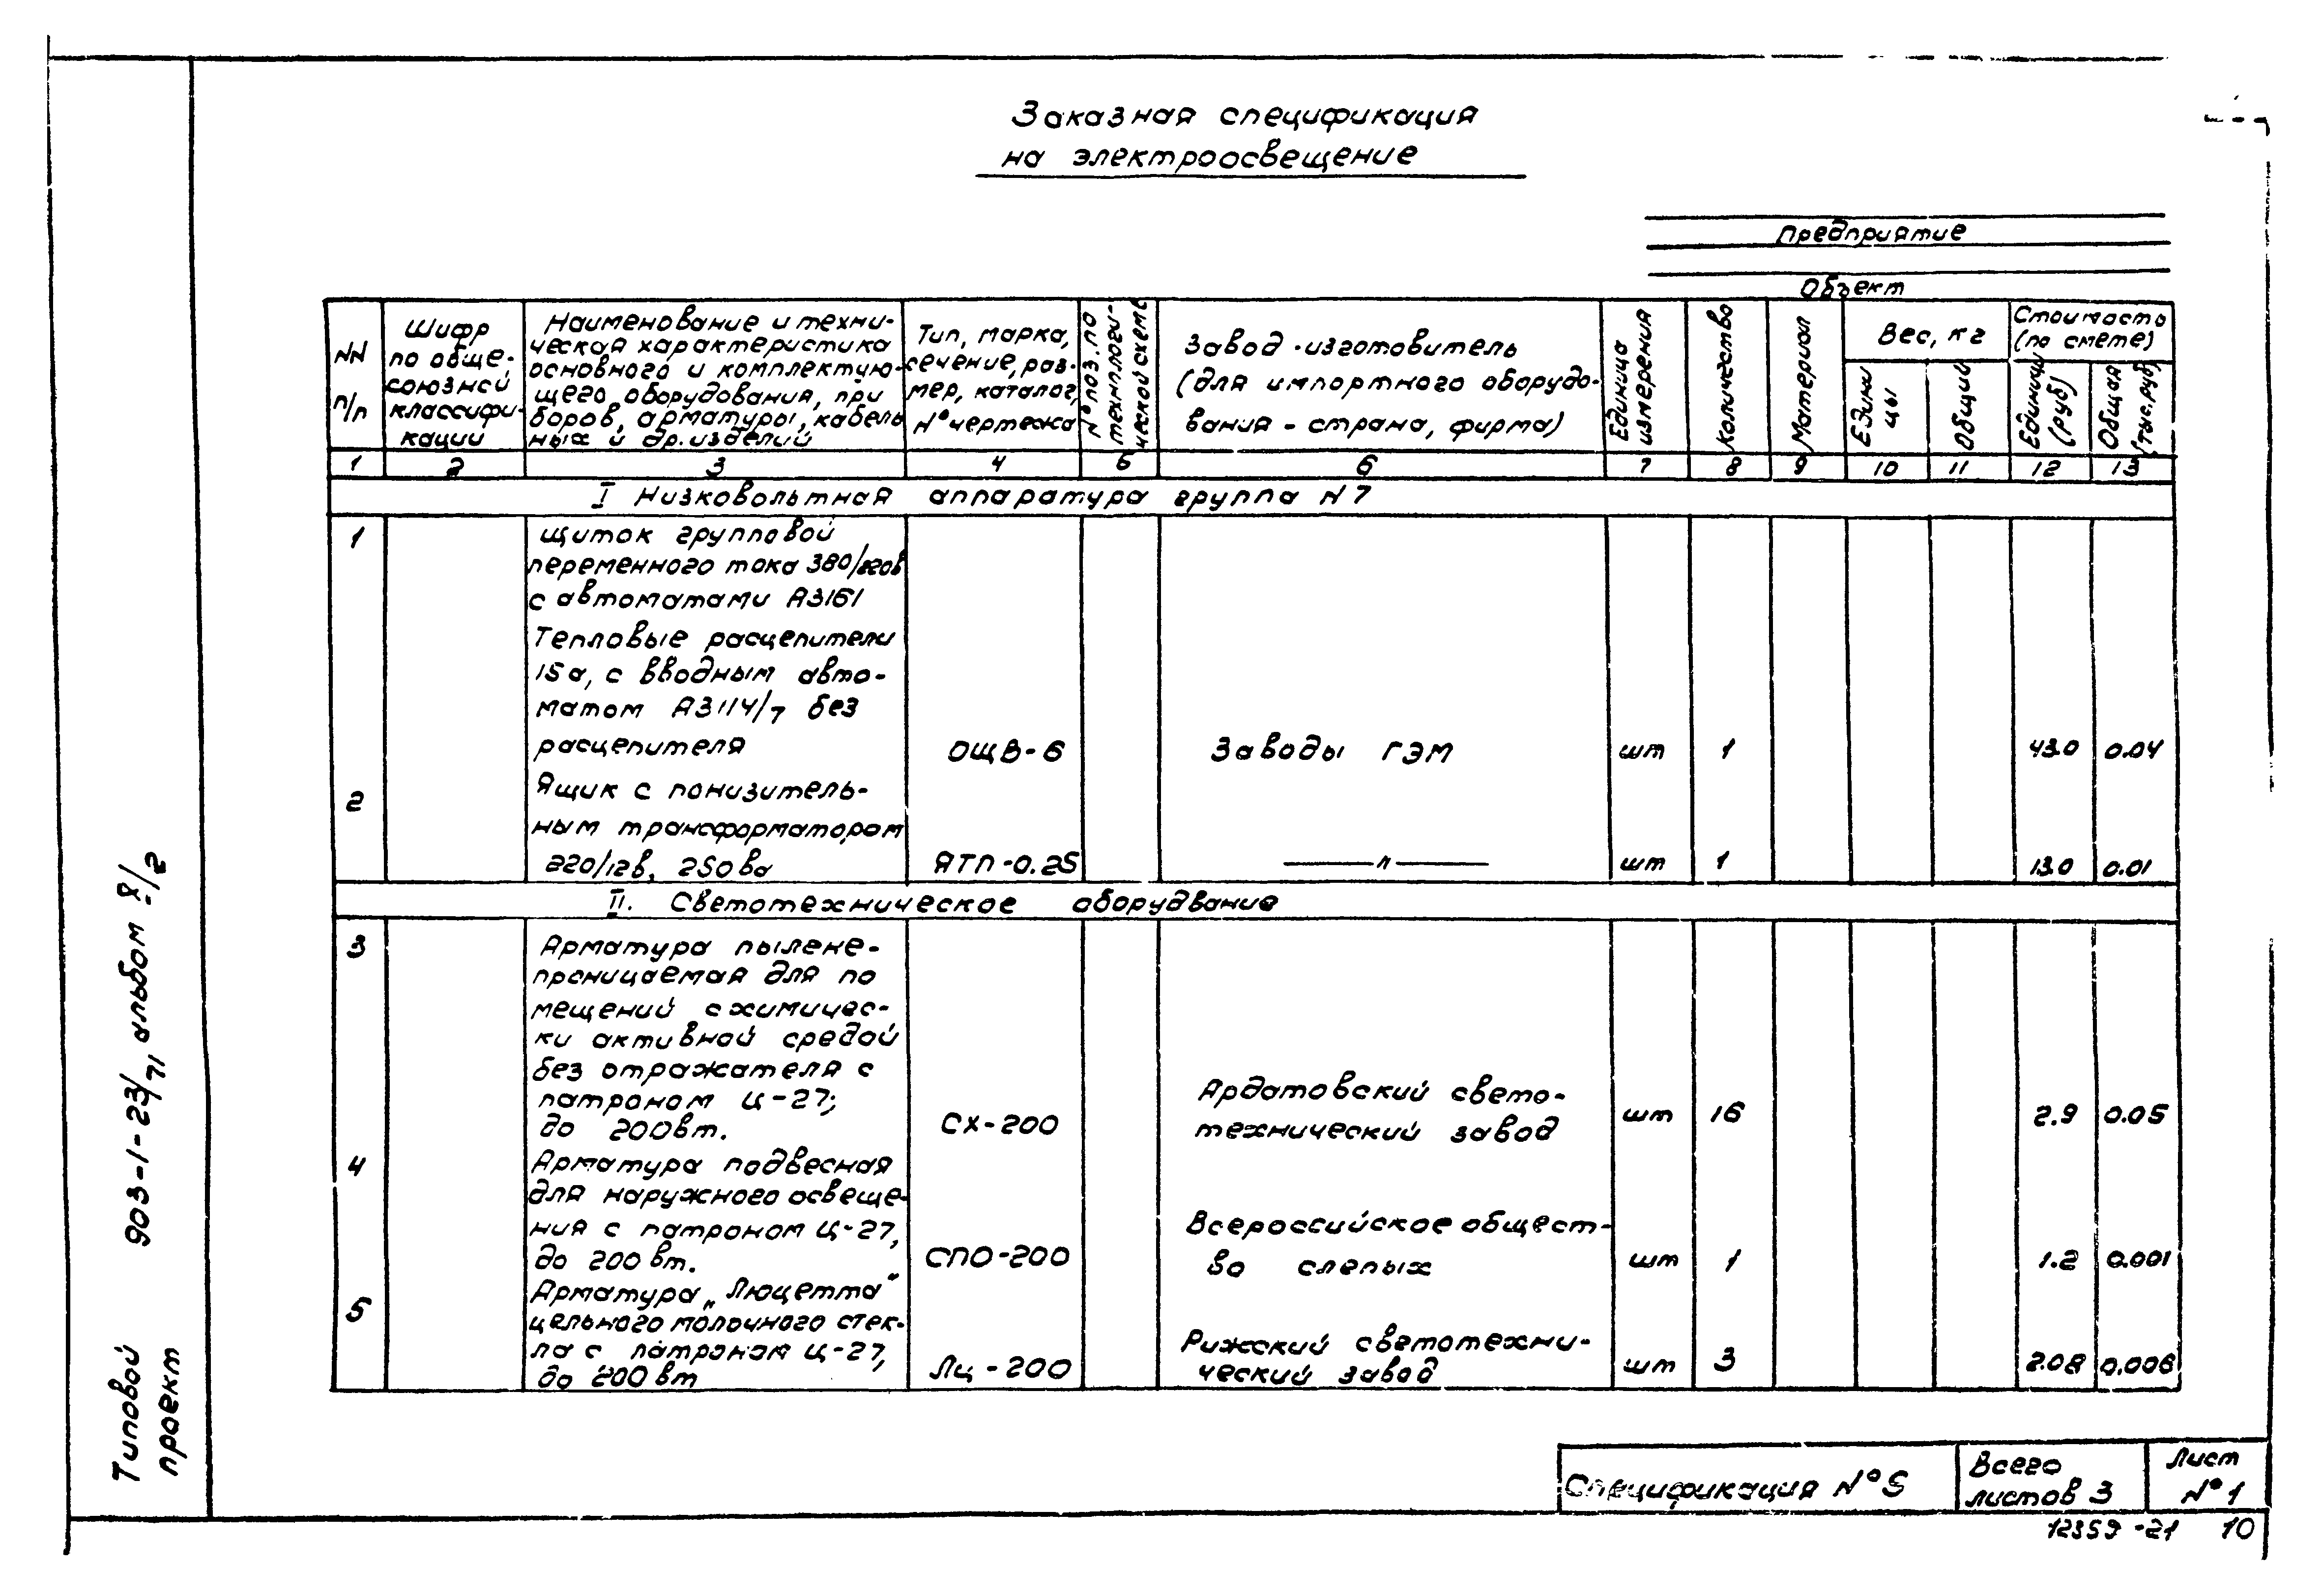 Заказная спецификация
на электроосвещение
Предприятие
Объект
NN
п/п
Шифр
по обще-
союзной
классифи-
кации
Наименование и техни-
ческая характеристика
основного и комплектую-
щего оборудования, при
боров, арматуры, кабель
ных и др. изделий
Тип, марка,
сечение, раз-
мер, каталог,
N° чертежа
N° поз. по
технологи-
ческой схеме
Завод-изготовитель
(для импортного оборудо-
вания - страна, фирма)
Единица
измерения
Количество
Материал
Вес, кг
Едини
цы
Общий
Стоимость
(по смете)
Единицы
(руб)
Общая
(тыс.руб)
1 2 3 4 5 6 7 8 9 10 11 12 13
I Низковольтная аппаратура группа N7
1
щиток групповой
переменного тока 380/220в
с автоматами А3161
Тепловые расцепители
15а, с вводным авто-
матом А3114/7 без
расцепителя ОЩВ-6 Заводы ГЭМ шт 1 43.0 0.04
2
Ящик с понизитель-
ным трансформатором
220/12в, 250ва ЯТП-0.25 —"— шт 1 13.0 0.01
II. Светотехническое оборудвание
3
Арматура пылене-
проницаемая для по
мещений с химичес-
ки активной средой
без отражателя с
патроном Ц-27;
до 200вт. СХ-200
Ардатовский свето-
технический завод
шт 16 2.9 0.05
4
Арматура подвесная
для наружного освеще-
ния с патроном Ц-27,
до 200 вт. СПО-200
Всероссийское общест-
во слепых
шт 1 1.2 0.001
5
Арматура „Люцетта"
цельного молочного стек-
ла с патроном Ц-27,
до 200 вт Лц-200
Рижский светотехни-
ческий завод
шт 3 2.08 0.006
Типовой
проект
903-1-23/71, альбом 8/2
Спецификация N°5
Всего
листов 3
Лист
N°1
12359-21 10